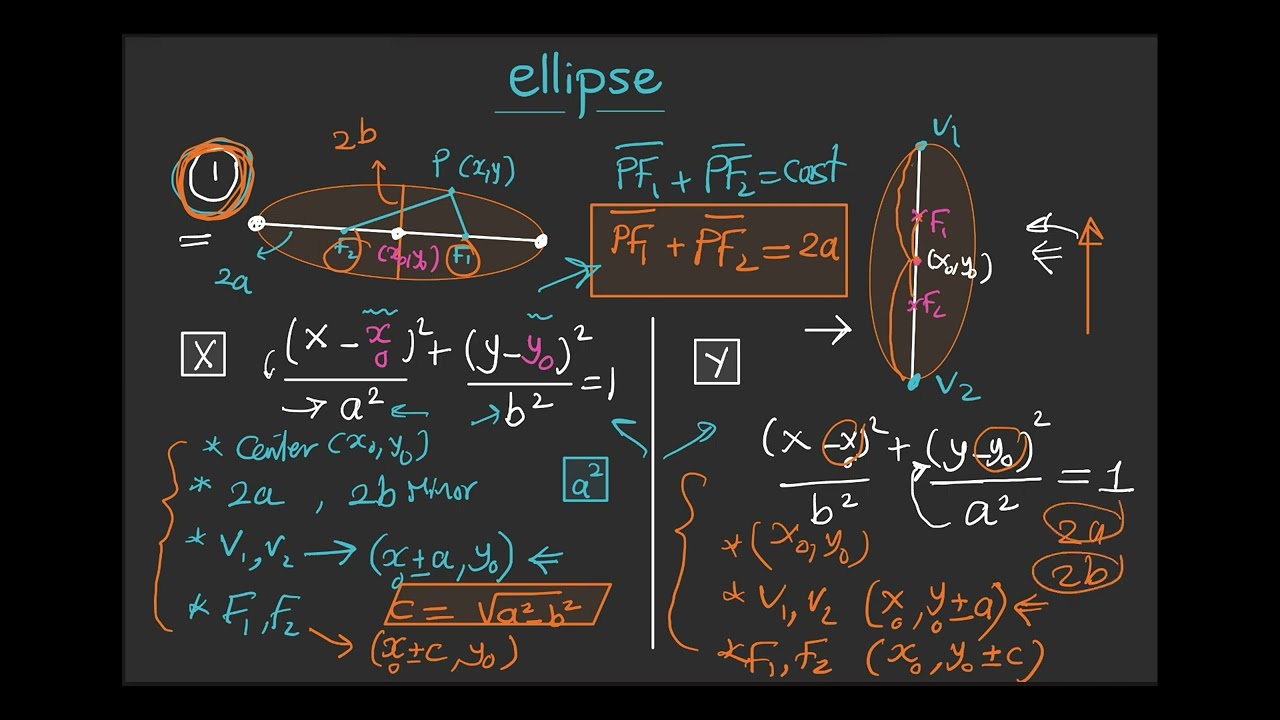 ellipse
1
2b
P (x,y)
F₂ (x₀,y₀) F₁
2a
=
P̅F̅₁ + P̅F̅₂ = Cast
P̅F̅₁ + P̅F̅₂ = 2a
V₁
F₁
(x₀,y₀)
F₂
V₂
X
(x - x₀)²/a² + (y - y₀)²/b² = 1
* Center (x₀,y₀)
* 2a , 2b Minor
a²
* V₁,V₂ → (x₀ ± a, y₀)
* F₁,F₂
c = √a²-b²
(x₀ ± c, y₀)
Y
(x - x₀)²/b² + (y - y₀)²/a² = 1
* (x₀,y₀)
2a
2b
* V₁, V₂ (x₀, y₀ ± a)
* F₁, F₂ (x₀, y₀ ± c)